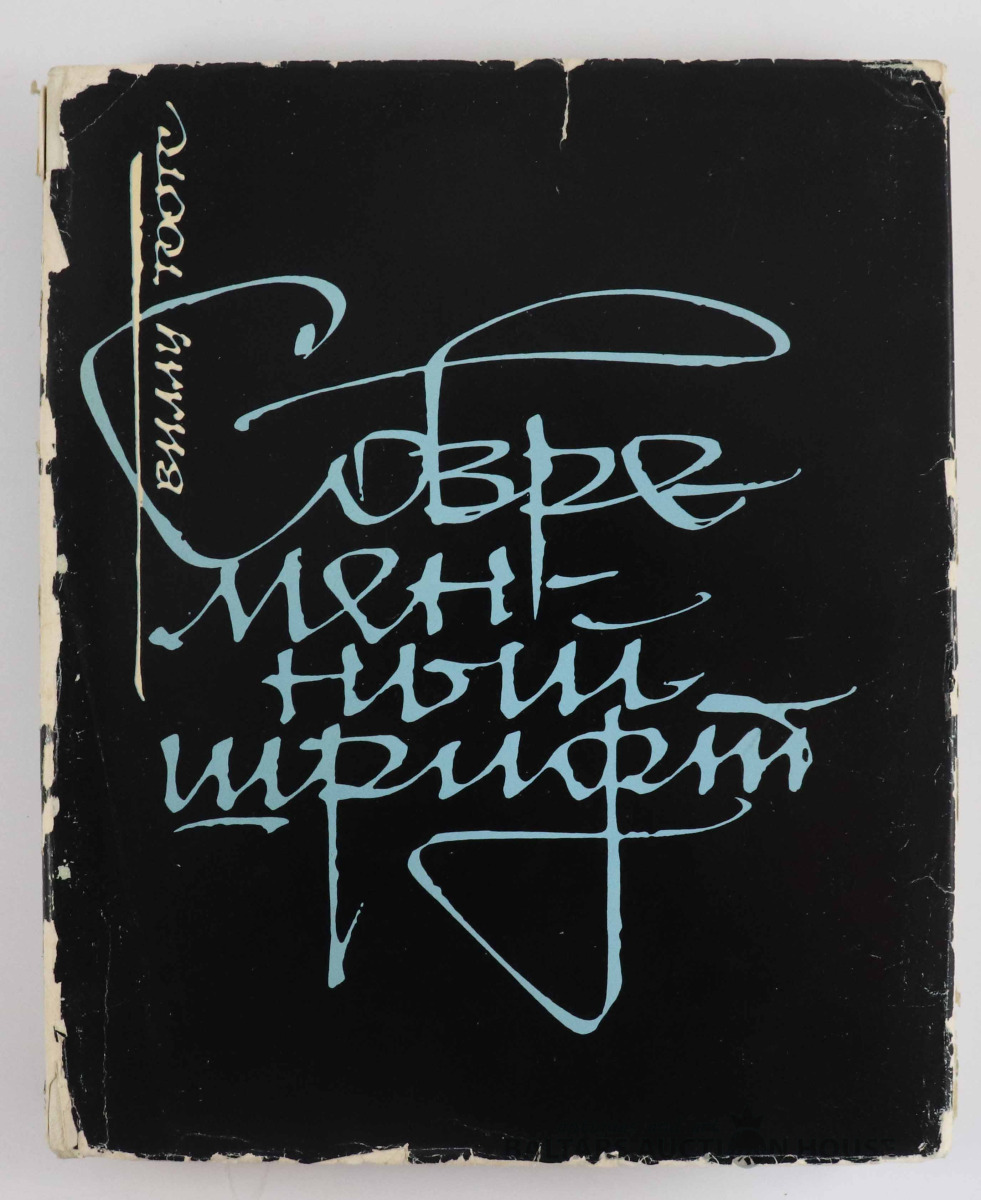 Вилли Тоотс
Совре
мен-
ный
шрифт
BALTARS AUCTION HOUSE